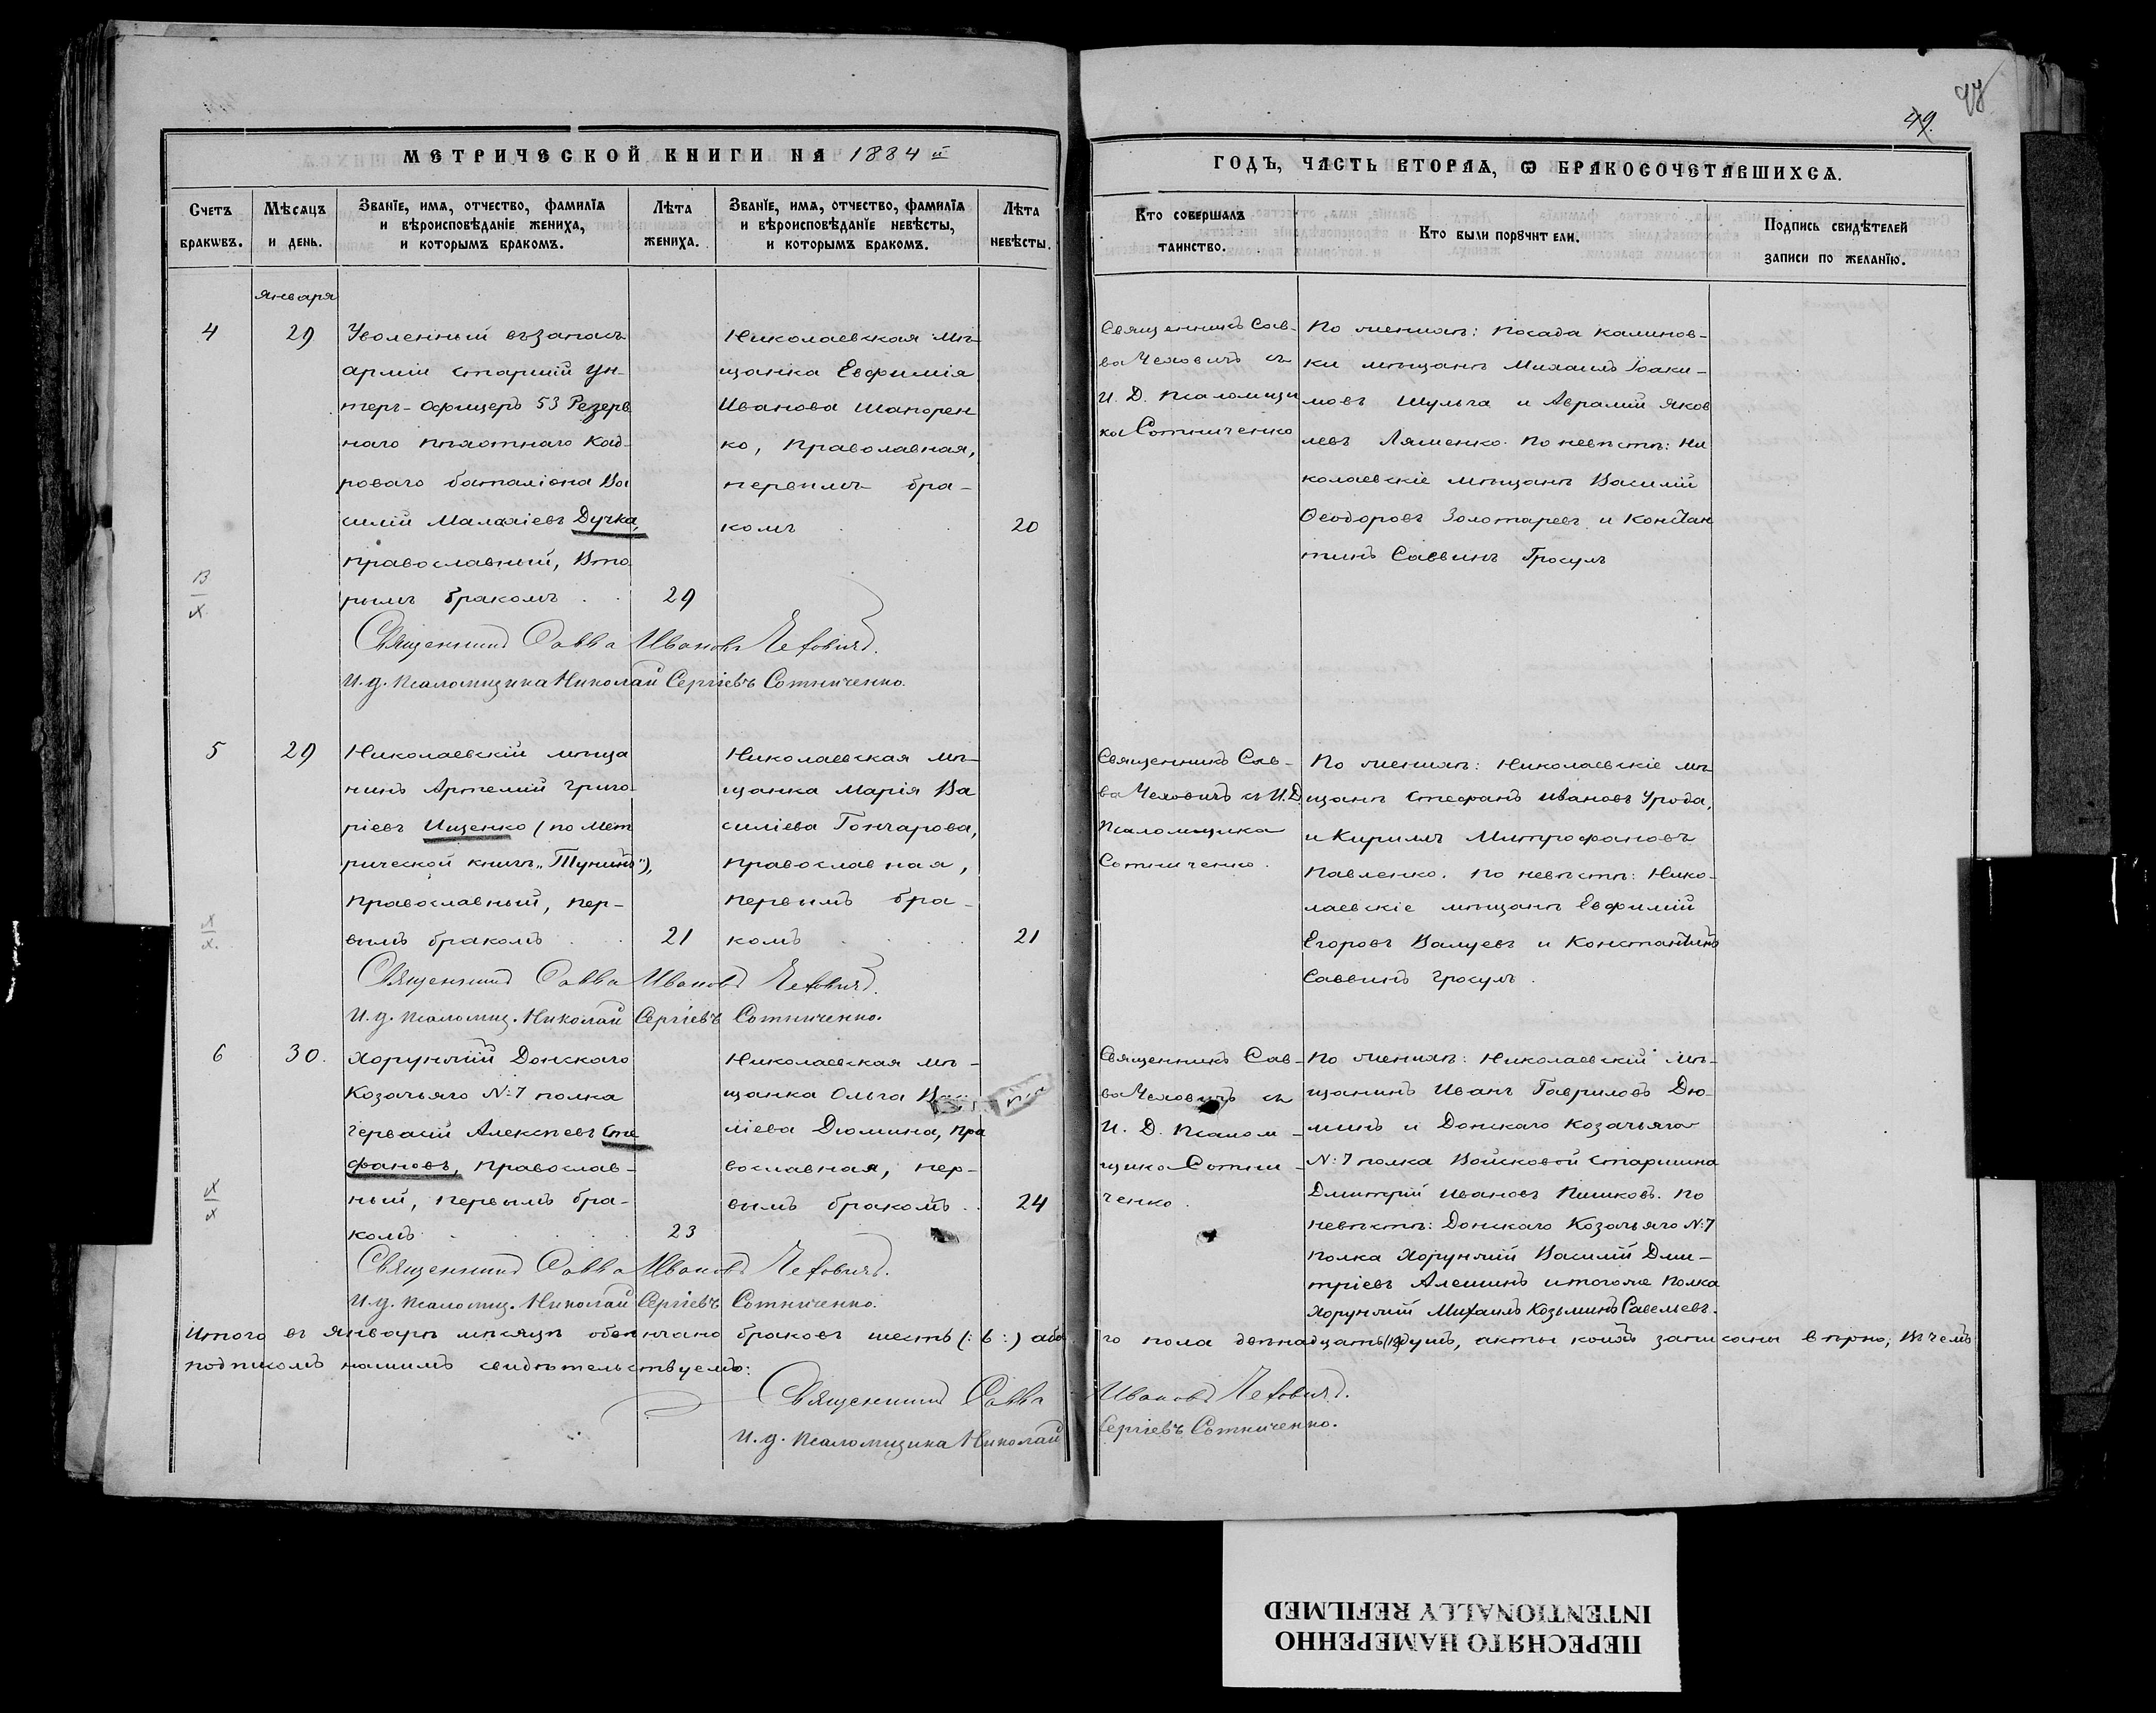 98
49.
МЕТРИЧЕСКОЙ КНИГИ НА 1884 й
ГОДЪ, ЧАСТЬ ВТОРАѦ, Ѡ БРАКОСОЧЕТАВШИХСѦ.
Счетъ браковъ.
Мѣсяцъ и день.
Званїе, имѧ, отчество, фамилїѧ
и вѣроисповѣданїе жениха,
и которымъ бракомъ.
Лѣта жениха.
Званїе, имѧ, отчество, фамилїѧ
и вѣроисповѣданїе невѣсты,
и которымъ бракомъ.
Лѣта невѣсты.
Кто совершалъ
таинство.
Кто были порꙋчители.
Подпись свидѣтелей
записи по желанїю.
Января
4
29
Уволенный въ запасъ
арміи старшій Ун-
теръ-Офицеръ 53 Резерв
наго пѣхотнаго Кад-
роваго баталіона Ва
силій Малахіевъ Дучка,
православный, Вто
рымъ бракомъ
29
Николаевская мѣ-
щанка Евфимія
Иванова Шапорен
ко, Православная,
первымъ бра-
комъ
20
Священникъ Сав-
ва Чеховичъ съ
И. Д. Псаломщи
ка Сотниченко
По женихѣ: Посада Калинов-
ки мѣщане Михаилъ Іоаки-
мовъ Шульга и Аврамій Яков
левъ Ляшенко. По невѣстѣ: Ни
колаевскіе мѣщане Василій
Ѳеодоровъ Золотаревъ и Констан
тинъ Саввинъ Гросулъ
В
х.
Священникъ Савва Ивановъ Чеховичъ.
И. д. псаломщика Николай Сергіевъ Сотниченко.
5
29
Николаевскій мѣща
нинъ Артемій Григо-
ріевъ Ищенко (по Мет
рической книгѣ „Тунинъ"),
православный, пер-
вымъ бракомъ
21
Николаевская мѣ-
щанка Марія Ва
силіева Гончарова,
православная,
первымъ бра-
комъ
21
Священникъ Сав-
ва Чеховичъ съ И. Д.
Псаломщика
Сотниченко.
По женихѣ: Николаевскіе мѣ-
щане Стефанъ Ивановъ Урода,
и Кириллъ Митрофановъ
Павленко. По невѣстѣ: Нико-
лаевскіе мѣщане Евфимій
Егоровъ Валуевъ и Константинъ
Саввинъ Гросулъ.
х
х.
Священникъ Савва Ивановъ Чеховичъ.
И. д. псаломщ. Николай Сергіевъ Сотниченко.
6
30.
Хорунжій Донскаго
Козачьяго №7 полка
Гервасій Алексѣевъ Сте
фановъ, Православ-
ный, первымъ бра-
комъ
23
Николаевская мѣ-
щанка Ольга
ліева Дюмина, пра
вославная, пер-
вымъ бракомъ
24
Священникъ Сав-
ва Чеховичъ съ
И. Д. Псалом-
щика Сотни-
ченко.
По женихѣ: Николаевскій мѣ-
щанинъ Иванъ Гавриловъ Дю-
минъ и Донскаго Козачьяго
№7 полка Войсковой старшина
Дмитрій Ивановъ Пишковъ. По
невѣстѣ: Донскаго Козачьяго №7
полка Хорунжій Василій Дми-
тріевъ Алешинъ и тогоже полка
Хорунжій Михаилъ Козьминъ Савельевъ.
х
х
Священникъ Савва Ивановъ Чеховичъ.
И. д. псаломщ. Николай Сергіевъ Сотниченко.
Итого въ Январѣ мѣсяцѣ обвѣнчано браковъ шесть (:6:) обоего пола двѣнадцать (12) душъ, акты коихъ записаны вѣрно, въ чемъ
подписомъ нашимъ свидѣтельствуемъ:
Священникъ Савва Ивановъ Чеховичъ.
И. д. псаломщика Николай Сергіевъ Сотниченко.
ПЕРЕСНЯТО НАМЕРЕННО
INTENTIONALLY REFILMED